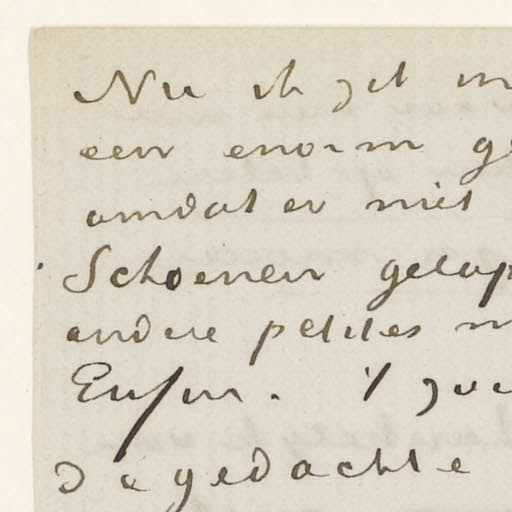 Nu ik zit m
een enorm ge
omdat er niet
Schoenen gelap
andere petites m
Enfin. 't zou
de gedachte